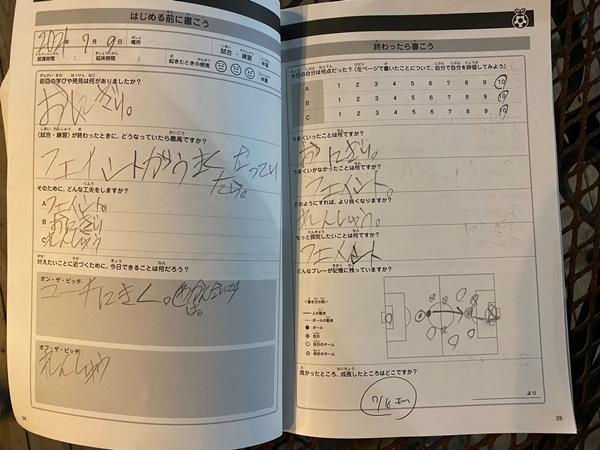 はじめる前に書こう
2021年 7月 9日 場所
就寝時間 : 起床時間 : 起きたときの感覚 試合・練習 体重 体重
前回の学びや発見は何がありましたか?
おにぎり。
(試合・練習)が終わったときに、どうなっていたら最高ですか?
フェイントがうまくなってい
たら。
そのために、どんな工夫をしますか?
A フェイント。
B おにぎり
れんしゅう
叶えたいことに近づくために、今日できることは何だろう?
オン・ザ・ピッチ
コーチにきく。
オフ・ザ・ピッチ
れんしゅう
24
終わったら書こう
今日の自分は何点だった?(左ページで書いたことについて、自分で自分を評価してみよう)
A 1 2 3 4 5 6 7 8 9 10
B 1 2 3 4 5 6 7 8 9 10
C 1 2 3 4 5 6 7 8 9 10
うまくいったことは何ですか?
おにぎり。
うまくいかなかったことは何ですか?
フェイント。
どのようにすれば、より良くなりますか?
れんしゅう。
もっと探究したいことは何ですか?
フェイント
どんなプレーが記憶に残っていますか?
<書き方の例>
人の動き
ボールの動き
ボール
自分
自分のチーム
相手のチーム
良かったところ、成長したところはどこですか?
より
25